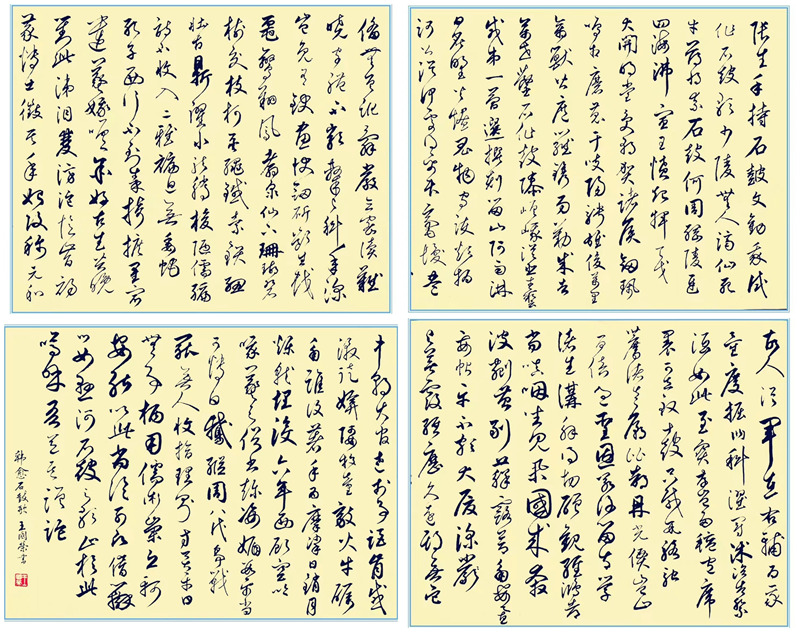 張生手持石鼓文勸我試
作石鼓歌少陵無人謫仙死
才薄將奈石鼓何周綱陵遲
四海沸宣王憤起揮天戈
大開明堂受朝賀諸侯劍珮
鳴相磨蒐于岐陽騁雄俊萬里
禽獸皆遮羅鐫功勒成告
萬世鑿石作鼓隳嵯峨從臣才藝
咸第一揀選撰刻留山阿雨淋
日炙野火燎鬼物守護煩撝
訶公從何處得紙本毫髮盡
備無差訛辭嚴義密讀難
曉字體不類隸與科年深
豈免有缺畫快劍斫斷生蛟
鼉鸞翔鳳翥眾仙下珊瑚碧
樹交枝柯金繩鐵索鎖鈕
壯古鼎躍水龍騰梭陋儒編
詩不收入二雅褊迫無委蛇
孔子西行不到秦掎摭星宿
遺羲娥嗟余好古生苦晚
對此涕淚雙滂沱憶昔初
蒙博士徵其年始改稱元和
故人從軍在右輔為我
量度掘臼科濯冠沐浴告祭
酒如此至寶存豈多氈包席
裹可立致十鼓只載數駱駝
薦諸太廟比郜鼎光價豈止
百倍過聖恩若許留太學
諸生講解得切磋觀經鴻都
尚填咽坐見舉國來奔
波剜苔剔蘚露節角安置
妥帖平不頗大廈深簷
與蓋覆經歷久遠期無佗
中朝大官老於事詎肯感
激徒媕婀牧童敲火牛礪
角誰復著手為摩挲日銷月
鑠就埋沒六年西顧空吟
哦羲之俗書趁姿媚數紙尚
可博白鵝繼周八代爭戰
罷無人收拾理則那方今太平日
無事柄用儒術崇丘軻
安能以此尚論列願借辯口
如懸河石鼓之歌止於此
嗚呼吾意其蹉跎
韓愈石鼓歌